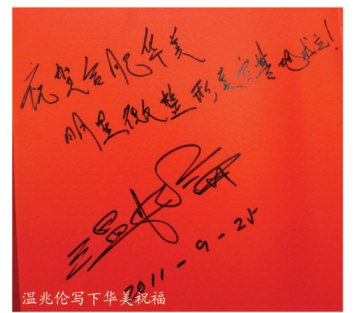 祝贺合肥华美
明星微整形美容基地成立!
温兆伦
2011-9-25
温兆伦写下华美祝福